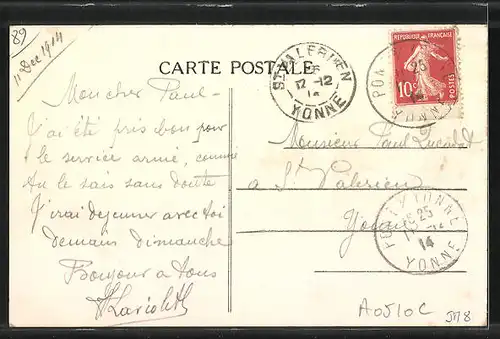 89
11 Dec 1914
CARTE POSTALE
Mon cher Paul -
J'ai été pris bon pour
le service armé, comme
tu le sais sans doute
J'irai dejeuner avec toi
demain dimanche
Bonjour a tous
ST VALERIEN
12-12
14
YONNE
RÉPUBLIQUE FRANÇAISE
10c
POSTES
Monsieur Paul
a St Valérien
Yonne
25
14
YONNE
A0510C